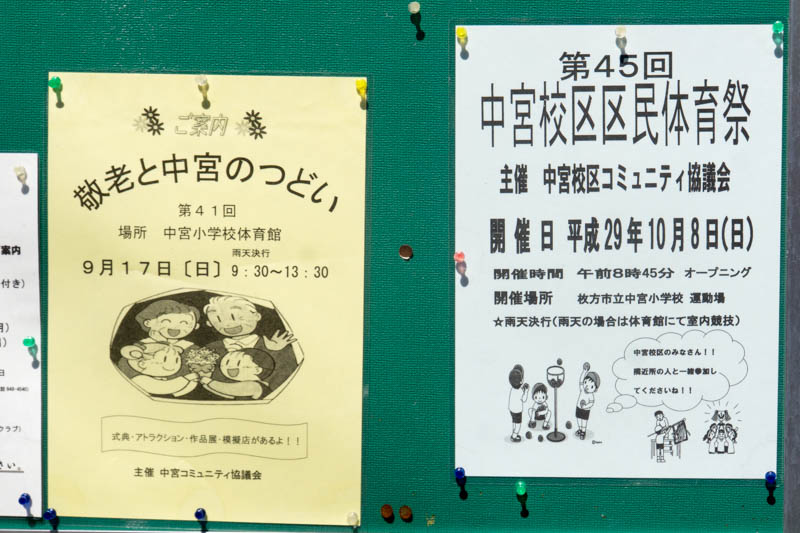 ご案内
敬老と中宮のつどい
第41回
場所 中宮小学校体育館
雨天決行
9月17日〔日〕9:30～13:30
式典・アトラクション・作品展・模擬店があるよ！！
主催 中宮コミュニティ協議会
第45回
中宮校区区民体育祭
主催 中宮校区コミュニティ協議会
開催日 平成29年10月8日(日)
開催時間 午前8時45分 オープニング
開催場所 枚方市立中宮小学校 運動場
☆雨天決行(雨天の場合は体育館にて室内競技)
中宮校区のみなさん！！
隣近所の人と一緒参加し
てくださいね！！
ご案内
付き)
月)
日
クラブ)
さい。